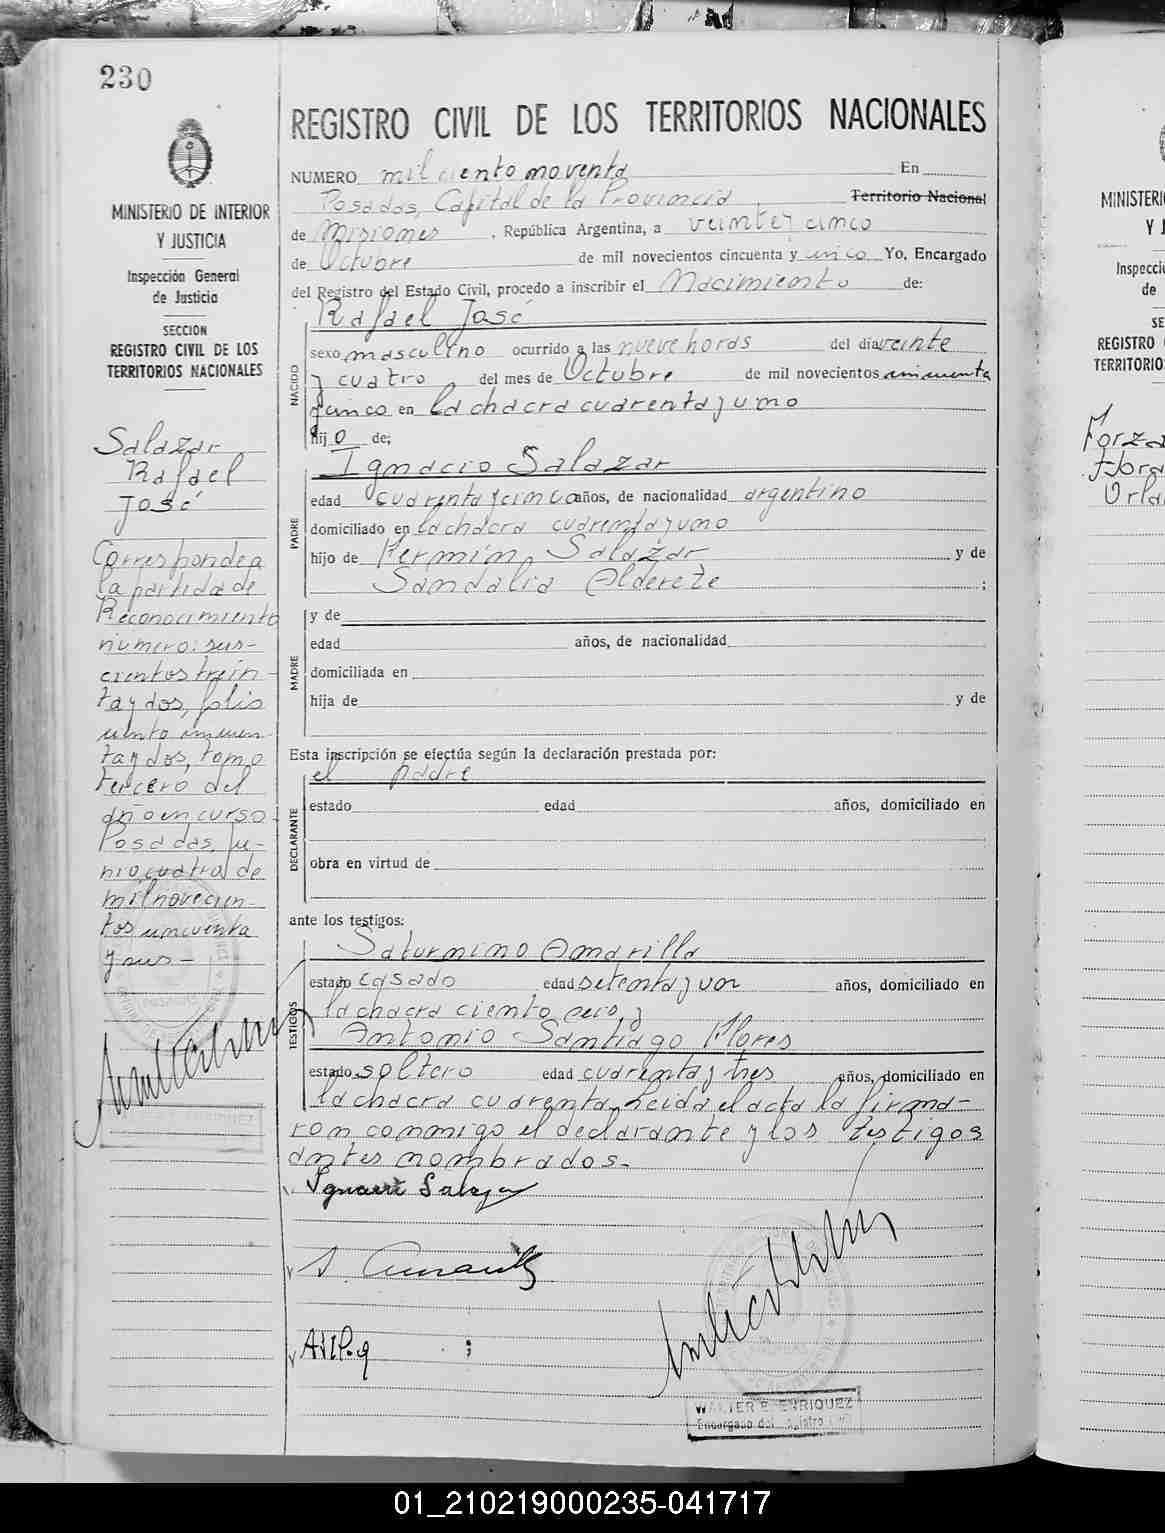 230
REGISTRO CIVIL DE LOS TERRITORIOS NACIONALES
MINISTERIO DE INTERIOR
Y JUSTICIA
Inspección General
de Justicia
SECCION
REGISTRO CIVIL DE LOS
TERRITORIOS NACIONALES
Salazar
Rafael
José
Corresponde a
la partida de
Reconocimiento
número: seis-
cientos trein-
ta y dos, folio
ciento cincuen-
ta y dos, tomo
tercero del
año en curso
Posadas, ju-
nio cuatro de
mil novecien-
tos cincuenta
y seis-
NUMERO mil ciento noventa En
Posadas, Capital de la Provincia Territorio Nacional
de Misiones , República Argentina, a veinte y cinco
de Octubre de mil novecientos cincuenta y cinco Yo, Encargado
del Registro del Estado Civil, procedo a inscribir el Nacimiento de:
NACIDO
Rafael José
sexo masculino ocurrido a las nueve horas del día veinte
y cuatro del mes de Octubre de mil novecientos cincuenta
y cinco en la chacra cuarenta y uno
hijo de;
PADRE
Ignacio Salazar
edad cuarenta y cinco años, de nacionalidad argentino
domiciliado en la chacra cuarenta y uno
hijo de Fermin Salazar y de
Sandalia Alderete ;
MADRE
y de
edad años, de nacionalidad
domiciliada en
hija de y de
Esta inscripción se efectúa según la declaración prestada por:
DECLARANTE
el padre
estado edad años, domiciliado en
obra en virtud de
ante los testigos:
TESTIGOS
Saturnino Amarilla
estado casado edad setenta y un años, domiciliado en
la chacra ciento seis, y
Antonio Santiago Flores
estado soltero edad cuarenta y tres años, domiciliado en
la chacra cuarenta. Leida el acta la firma-
ron conmigo el declarante y los testigos
antes nombrados.-
Ignacio Salazar
S. Amarilla
WALTER E. ENRIQUEZ
Encargado del Registro Civil
MINISTERI
Y J
Inspecci
de
SE
REGISTRO
TERRITORIO
Forza
Abra
Orla
01_210219000235-041717